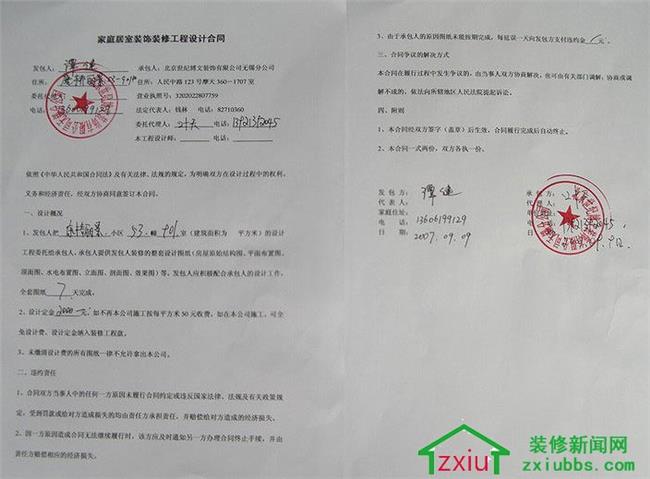 家庭居室装饰装修工程设计合同
发包人：谭健 承包人：北京世纪博文装饰有限公司无锡分公司
住所： 住所：人民中路123号摩天360－1707室
委托代 营业执照号：3202022807759
电话： 法定代表人：钱林 电话：82710360
委托代理人： 电话：
本工程设计师： 电话：
依照《中华人民共和国合同法》及有关法律、法规的规定，为明确双方在设计过程中的权利、
义务和经济责任，经双方协商同意签订本合同。
一、设计概况
1、发包人把 小区 53 幢 901 室（建筑面积为 平方米）的设计
工程委托给承包人，承包人提供发包人装修的整套设计图纸（房屋原始结构图、平面布置图、
顶面图、水电布置图、立面图、剖面图、效果图）等。发包人应积极配合承包人的设计工作，
全套图纸 7 天完成。
2、设计定金 2000元 如不再本公司施工按每平方米50元收费，如在本公司施工，可全
免设计费，设计定金纳入装修工程款。
3、未缴清设计费的所有图纸一律不允许拿出本公司。
二、违约责任
1、合同双方当事人中的任何一方原因未履行合同约定或违反国家法律、法规及有关政策规
定，受到罚款或给对方造成损失的均由责任方承担责任，并赔偿给对方造成的经济损失。
2、因一方原因造成合同无法继续履行时，该方应及时通知另一方办理合同终止手续，并由
责任方赔偿相应的经济损失。
3、由于承包人的原因图纸未能按期完成，每延误一天向发包方支付违约金 元。
三、合同争议的解决方式
本合同在履行过程中发生争议的，由当事人双方协商解决，也可由有关部门调解；协商或调
解不成的，依法向所辖地区人民法院提起诉讼。
四、附则
1、本合同经双方签字（盖章）后生效，合同履行完成后自动终止。
2、本合同一式两份，双方各执一份。
发 包 方：谭健 承 包 方：
代 表 人： 代 表 人：
家庭住址：
电 话：13606199129 电 话：
日 期：2007.09.09 日 期：
zxiu
装修新闻网
zxiubbs.com